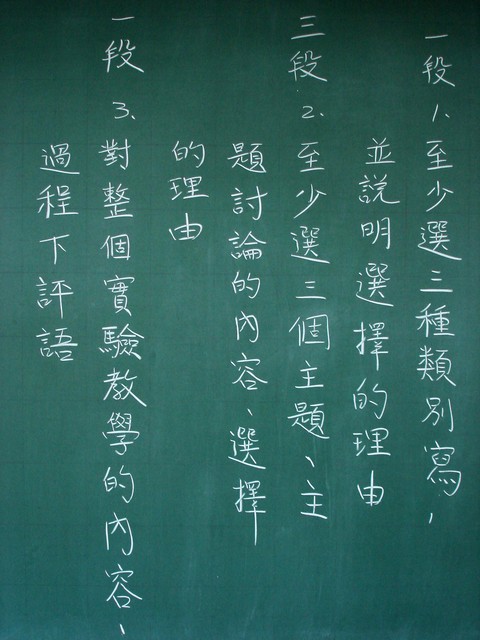 一段 1.至少選三種類別寫，
並說明選擇的理由
三段 2.至少選三個主題、主
題討論的內容、選擇
的理由
一段 3、對整個實驗教學的內容、
過程下評語